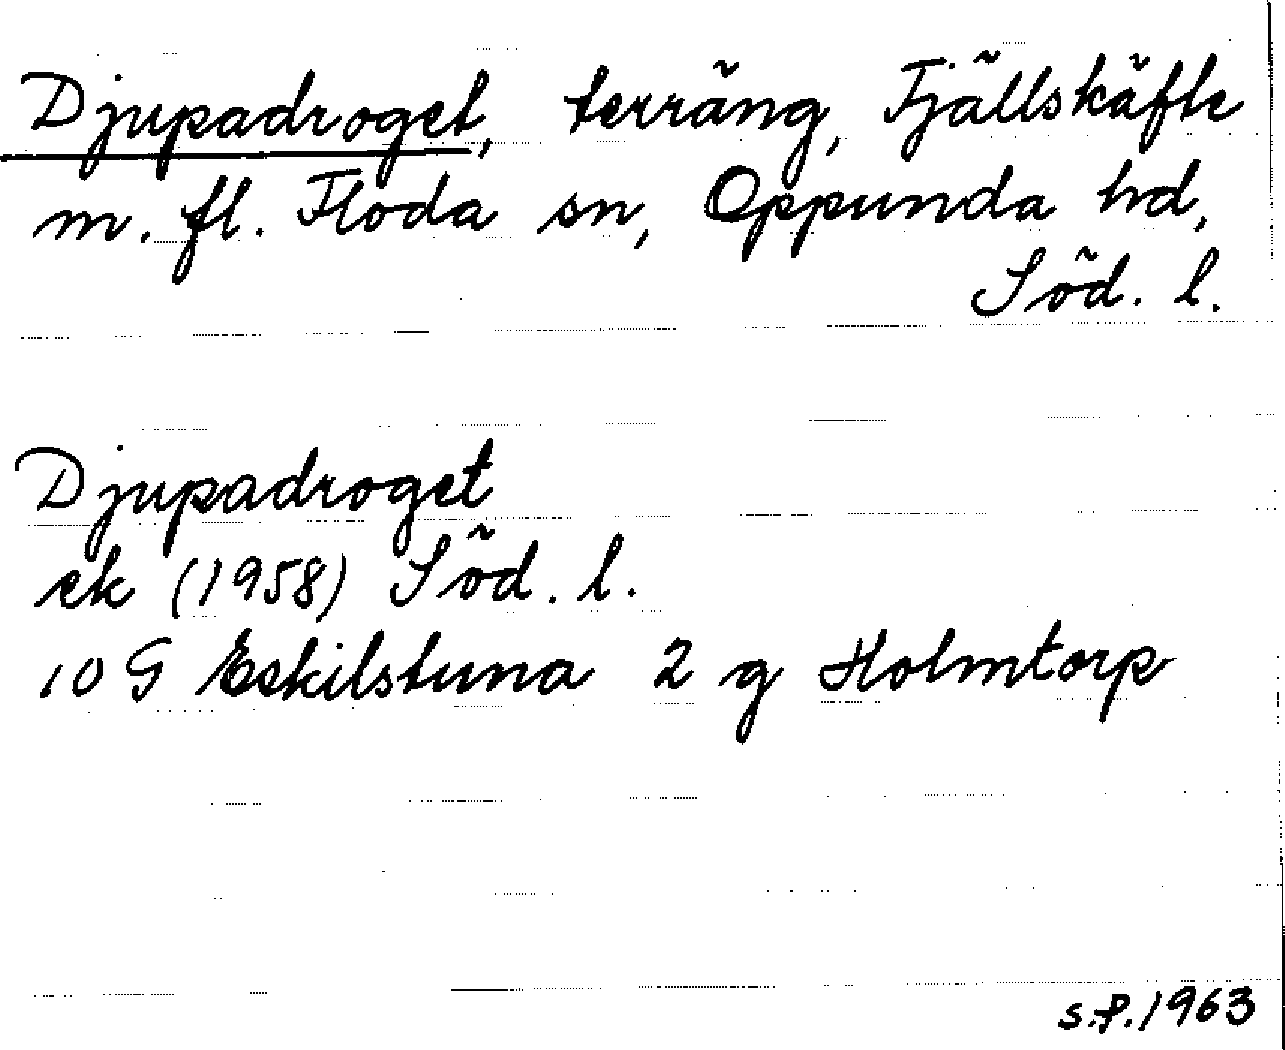 Djupadroget, terräng, Fjällskäfte
m. fl. Floda sn, Oppunda hd,
Söd. l.
Djupadroget
ek (1958) Söd. l.
10 G Eskilstuna 2 g Holmtorp
s.f. 1963